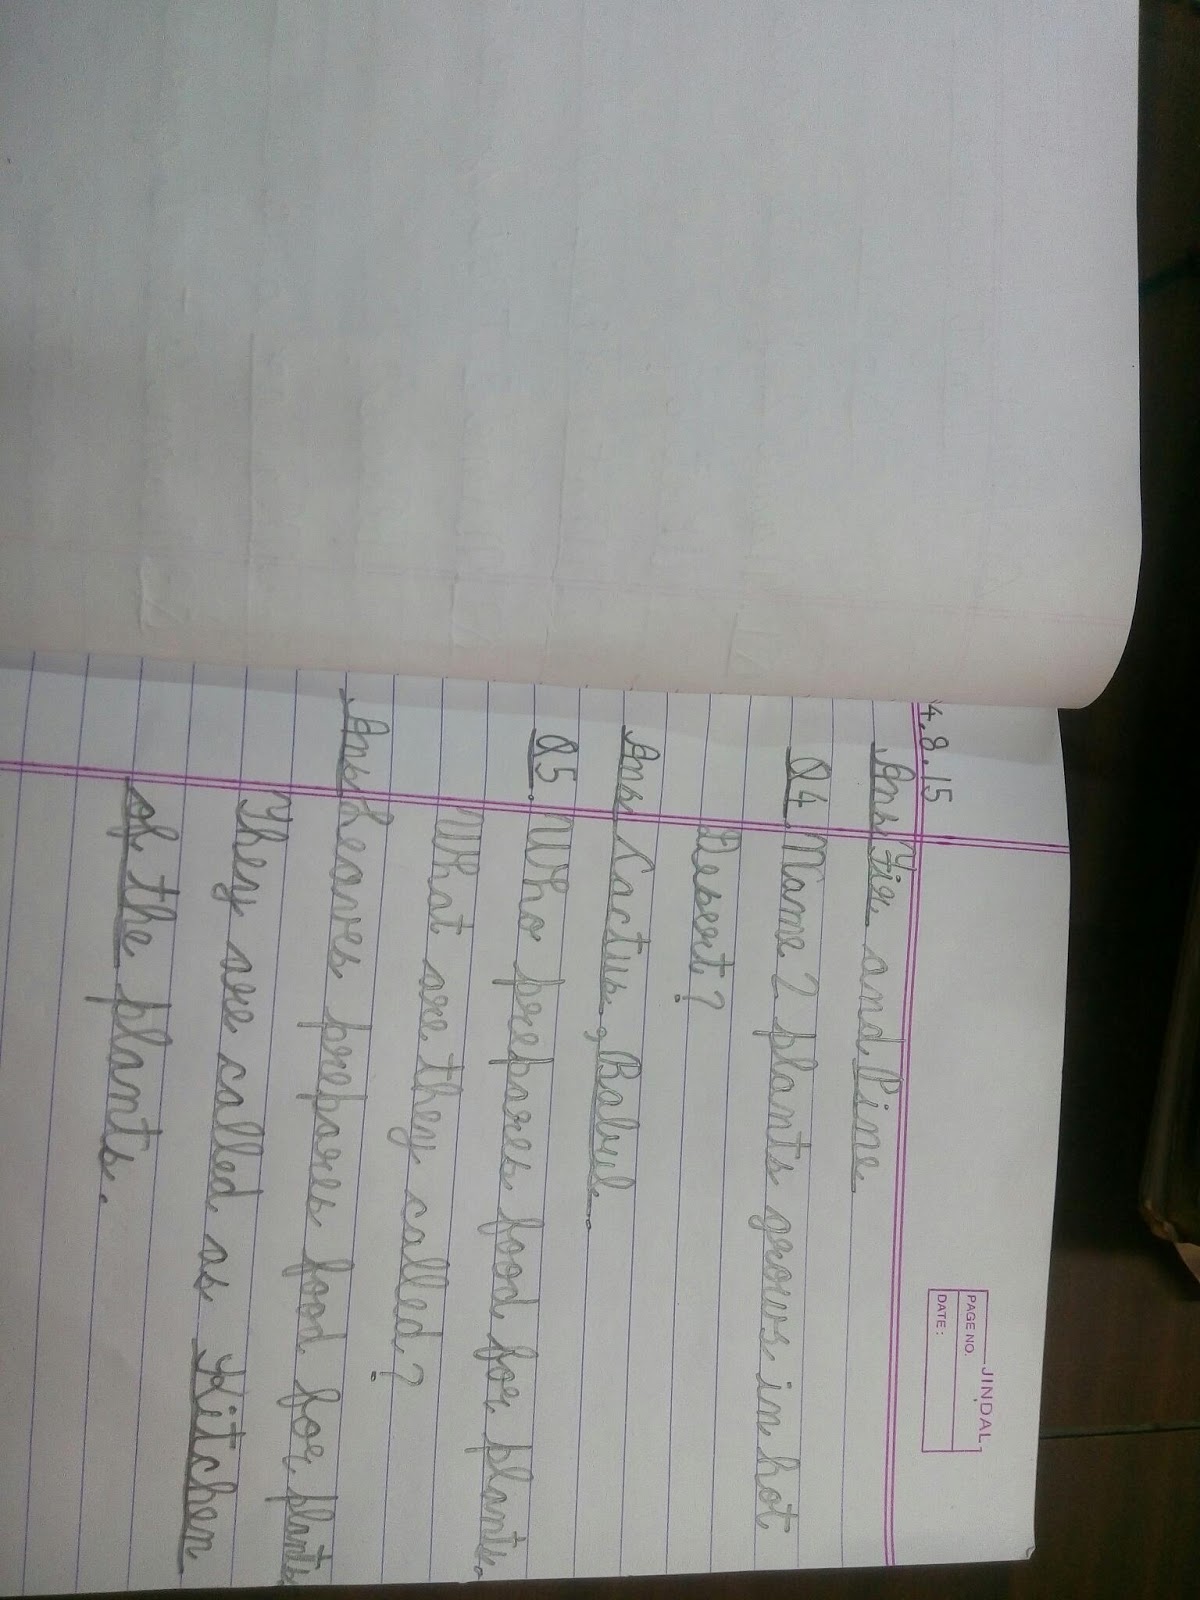 JINDAL
PAGE NO.
DATE:
4.8.15
Ans Fir and Pine
Q4. Name 2 plants grows in hot
Desert?
Ans Cactus, Babul.
Q5. Who prepares food for plants.
What are they called?
Ans Leaves prepares food for plants
They are called as Kitchen
of the plants.